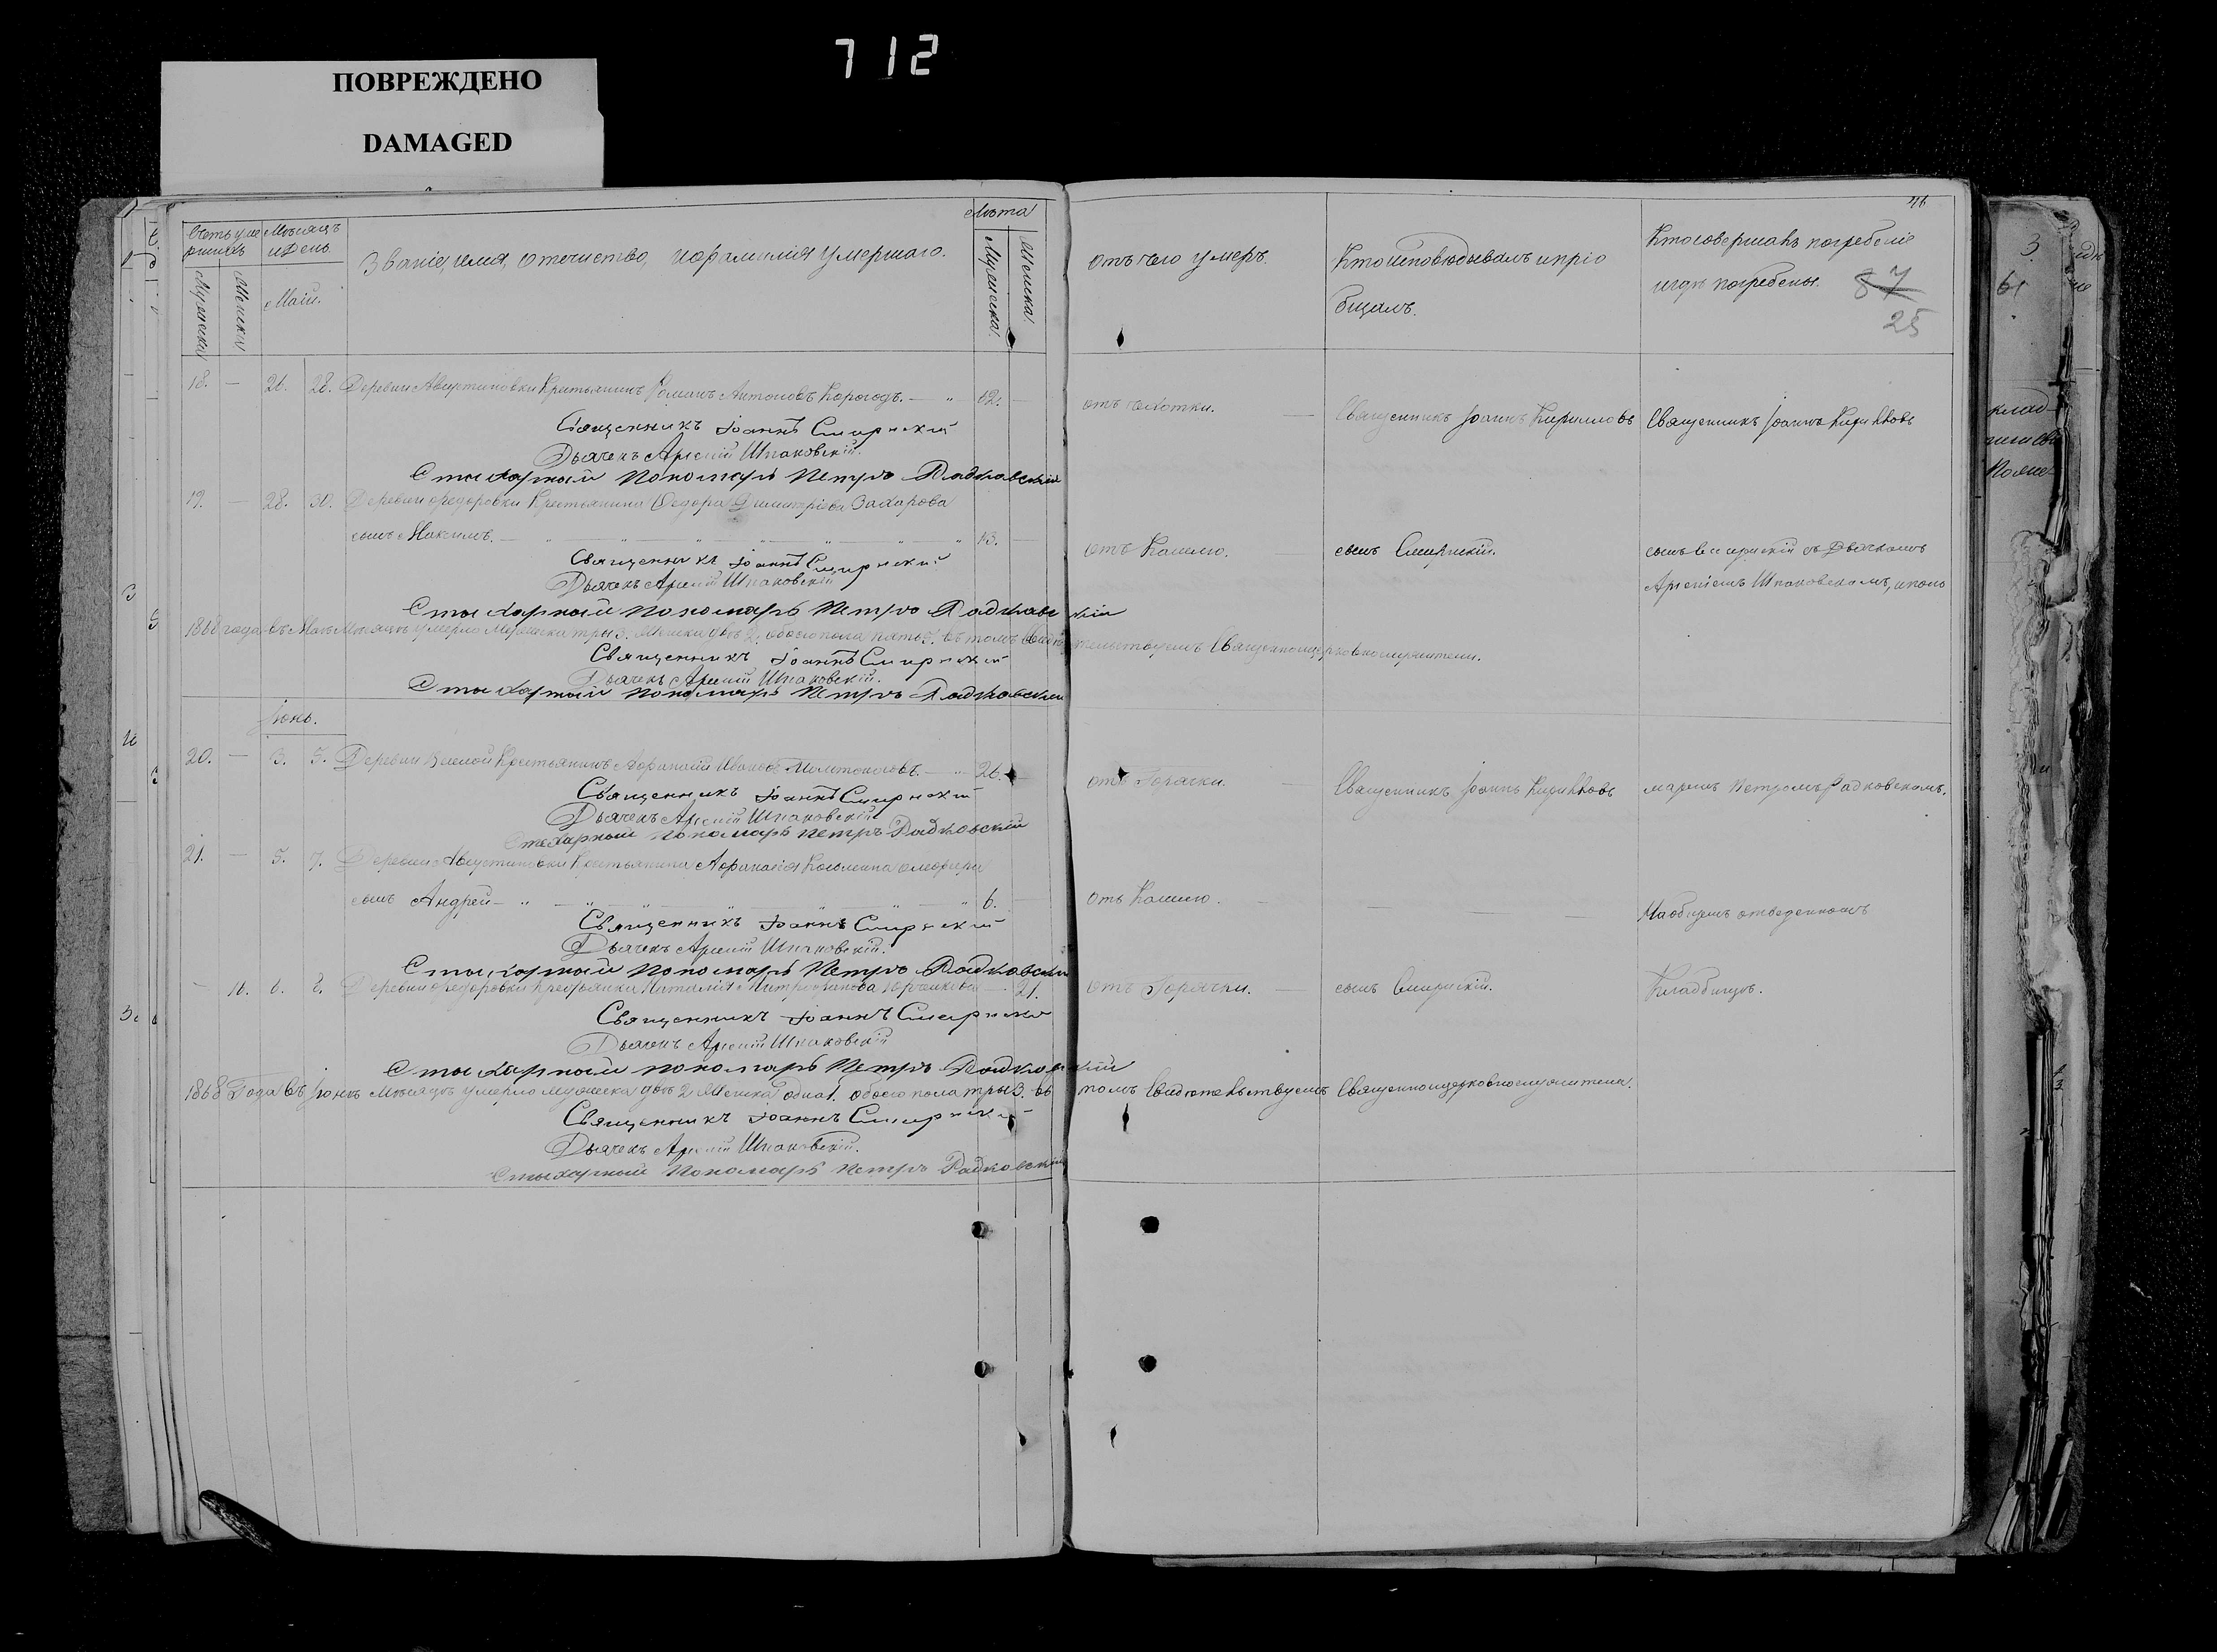 712
ПОВРЕЖДЕНО
DAMAGED
46
Лѣта
Счетъ уме
ршихъ
Мѣсяцъ
и День.
Званіе, имя, отечиство, и фамилія умершаго.
Мужеска
Женска
Маій.
Мужеска.
Женска.
отъ чего умеръ.
Кто исповѣдывалъ и пріо
бщалъ.
Кто совершалъ погребеніе
и гдѣ погребены.
87
25
18. — 26. 28. Деревни Августиновки Крестьянинъ Романъ Антоновъ Корогодъ. — " — 62. —
отъ чахотки. — Священникъ Іоаннъ Кирилловъ Священникъ Іоаннъ Кирилловъ
Священникъ Іоаннъ Смирнскій
Дьячекъ Арсеній Шпаковскій.
Стихарный Пономарь Петръ Радковскій
19. — 28. 30. Деревни Федоровки Крестьянина Федора Димитріева Захарова
сынъ Максимъ. — " — " — " — " — " — " — " 13. —
отъ Кашлю. сынъ Смирнскій. Смирнскій съ Дьячкомъ
Арсеніемъ Шпаковскимъ, и поно
Священникъ Іоаннъ Смирнскій
Дьячекъ Арсеній Шпаковскій
Стихарный Пономарь Петръ Радковскій
1868 года въ Маѣ Мѣсяцѣ умерло Мужеска три 3. Женска двѣ 2. обоего пола пять 5. въ томъ свидѣтельствуемъ Священноцерковнослужители.
Священникъ Іоаннъ Смирнскій
Дьячекъ Арсеній Шпаковскій.
Стихарный Пономарь Петръ Радковскій
Іюнь.
20. — 3. 5. Деревни Крестьянинъ Афанасій Ивановъ — " 26. —
отъ Горячки. — Священникъ Іоаннъ Кирилловъ маремъ Петромъ Радковскимъ.
Священникъ Іоаннъ Смирнскій
Дьячекъ Арсеній Шпаковскій
Стихарный Пономарь Петръ Радковскій
21. — 5. 7. Деревни Августиновки Крестьянина Афанасія
сынъ Андрей — " — " — " — " — " — " — " 6. —
отъ Кашлю. — — — — На общемъ отведенномъ
Священникъ Іоаннъ Смирнскій
Дьячекъ Арсеній Шпаковскій.
Стихарный Пономарь Петръ Радковскій
— 16. 6. 8. Деревни Федоровки Крестьянка Наталія Митрофанова Юрченкова — 21.
отъ Горячки. — сынъ Смирнскій. Кладбищѣ.
Священникъ Іоаннъ Смирнскій
Дьячекъ Арсеній Шпаковскій
Стихарный Пономарь Петръ Радковскій
1868 Года въ Іюнѣ Мѣсяцѣ умерло мужеска два 2 Женска одна 1. обоего пола три 3. въ томъ Свидѣтельствуемъ Священноцерковнослужители.
Священникъ Іоаннъ Смирнскій
Дьячекъ Арсеній Шпаковскій.
Стихарный Пономарь Петръ Радковскій